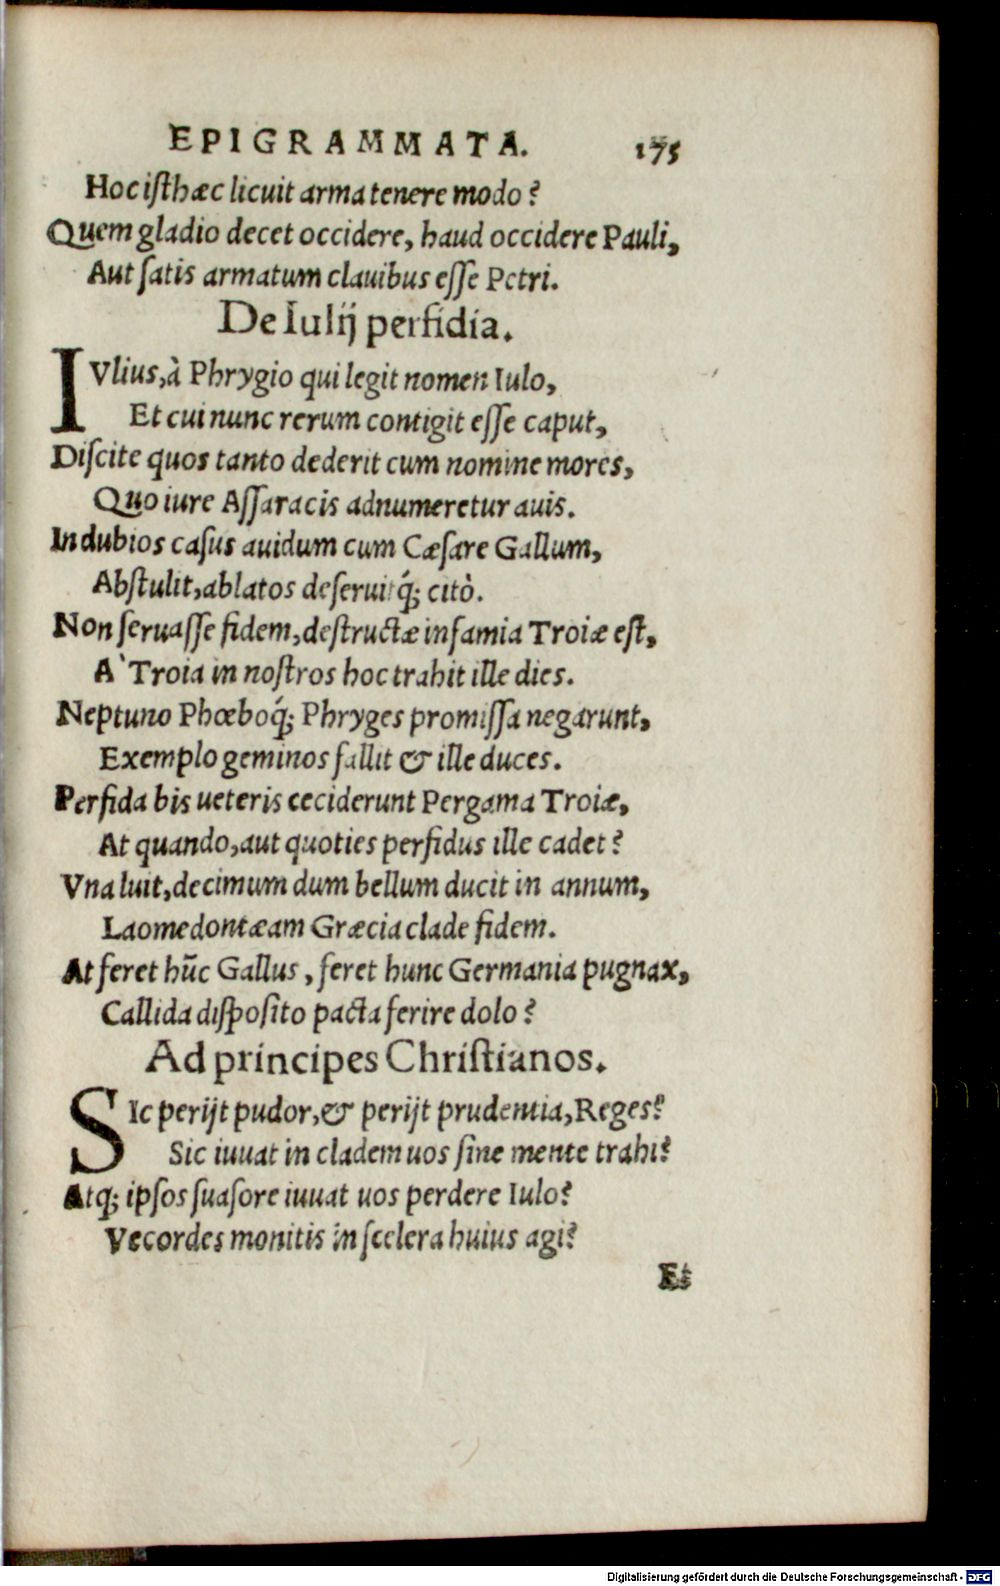 EPIGRAMMATA. 175
Hoc isthæc licuit arma tenere modo?
Quem gladio decet occidere, haud occidere Pauli,
Aut satis armatum clauibus esse Petri.
De Iulij perfidia.
IVlius, à Phrygio qui legit nomen Iulo,
Et cui nunc rerum contigit esse caput,
Discite quos tanto dederit cum nomine mores,
Quo iure Assaracis adnumeretur auis.
In dubios casus auidum cum Cæsare Gallum,
Abstulit, ablatos deseruitq́; citò.
Non seruasse fidem, destructæ infamia Troiæ est,
A` Troia in nostros hoc trahit ille dies.
Neptuno Phœboq́; Phryges promissa negarunt,
Exemplo geminos fallit & ille duces.
Perfida bis ueteris ceciderunt Pergama Troiæ,
At quando, aut quoties perfidus ille cadet?
Vna luit, decimum dum bellum ducit in annum,
Laomedontæam Græcia clade fidem.
At feret hūc Gallus, feret hunc Germania pugnax,
Callida disposito pacta ferire dolo?
Ad principes Christianos.
SIc perijt pudor, & perijt prudentia, Reges?
Sic iuuat in cladem uos sine mente trahi?
Atq; ipsos suasore iuuat uos perdere Iulo?
Vecordes monitis in scelera huius agi?
Et
Digitalisierung gefördert durch die Deutsche Forschungsgemeinschaft - DFG